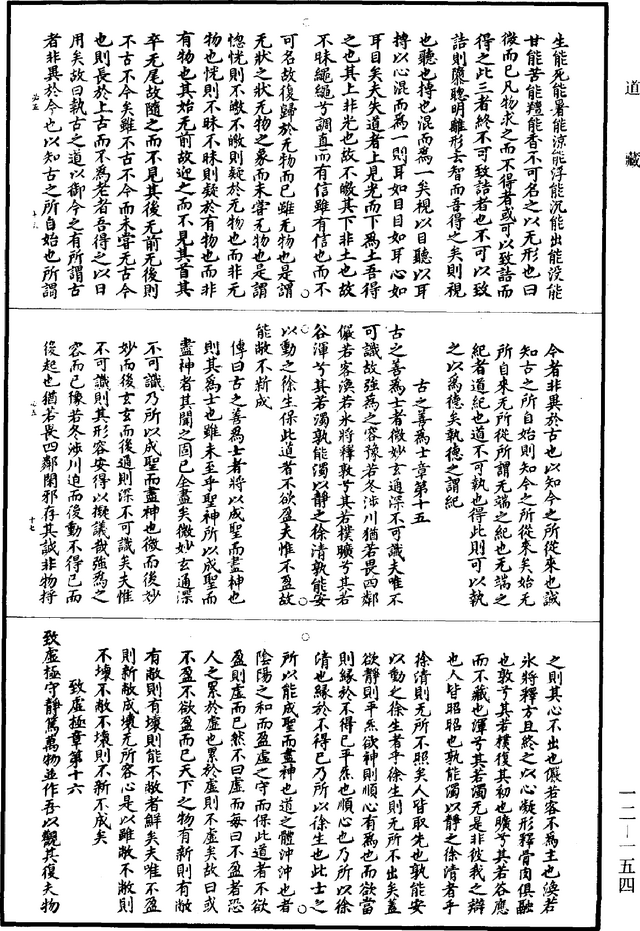 道藏
生能死能暑能涼能浮能沉能出能没能
甘能苦能羶能香不可名之以无形也曰
復而已凡物求之而不得者或可以致詰而
得之此三者終不可致詰者也不可以致
詰則隳聰明離形去智而吾得之矣則視
也聽也摶也混而為一矣視以目聽以耳
摶以心混而為一則耳如目目如耳心如
耳目矣夫失道者上見光而下為土吾得
之也其上非光也故不皦其下非土也故
不昧繩繩兮調直而有信雖有信也而不
可名故復歸於无物而已雖无物也是謂
无狀之狀无物之象而未嘗无物也是謂
惚恍則不皦不皦則疑於无物也而非无
物也恍則不昧不昧則疑於有物也而非
有物也其始无前故迎之而不見其首其
卒无尾故隨之而不見其後无前无後則
不古不今矣雖不古不今而未嘗无古今
也則長於上古而不為老者吾得之以日
用矣故曰執古之道以御今之有所謂古
者非異於今也以知古之所自始也所謂
今者非異於古也以知今之所從來也誠
知古之所自始則知今之所從來矣始无
所自來无所從所謂无端之紀也无端之
紀者道紀也道不可執也得此則可以執
之以為德矣執德之謂紀
古之善為士章第十五
古之善為士者微妙玄通深不可識夫唯不
可識故強為之容豫若冬涉川猶若畏四鄰
儼若客渙若氷將釋敦兮其若樸曠兮其若
谷渾兮其若濁孰能濁以靜之徐清孰能安
以動之徐生保此道者不欲盈夫惟不盈故
能敝不新成
傳曰古之善為士者將以成聖而盡神也
則其為士也雖未至乎聖神所以成聖而
盡神者其聞之固已全盡矣微妙玄通深
不可識乃所以成聖而盡神也微而後妙
妙而後玄玄而後通則深不可識矣夫惟
不可識則其形容安得以擬議哉強為之
容而已豫若冬涉川迫而後動不得已而
後起也猶若畏四鄰閑邪存其誠非物捋
之則其心不出也儼若客不為主也渙若
氷將釋方且終之以心凝形釋骨肉俱融
也敦兮其若樸復其初也曠兮其若谷應
而不藏也渾兮其若濁无是非彼我之辯
也人皆昭昭也孰能濁以靜之徐清者乎
徐清則无所不照矣人皆取先也孰能安
以動之徐生者乎徐生則无所不出矣蓋
欲靜則平炁欲神則順心有為也而欲當
則緣於不得已平炁也順心也乃所以徐
清也緣於不得已乃所以徐生也此士之
所以能成聖而盡神也道之體沖沖也者
陰陽之和而盈虛之守而保此道者不欲
盈則虛而已然不曰虛而每曰不盈者恐
人之累於虛也累於虛則不虛矣故曰或
不盈不欲盈而已天下之物有新則有敝
有敝則有壞則能不敝者鮮矣夫唯不盈
則新敝成壞无所容心是以雖敝不敝則
不壞不敝不壞則不新不成矣
致虛極章第十六
致虛極守靜篤萬物並作吾以觀其復夫物
十七
一二—一五四